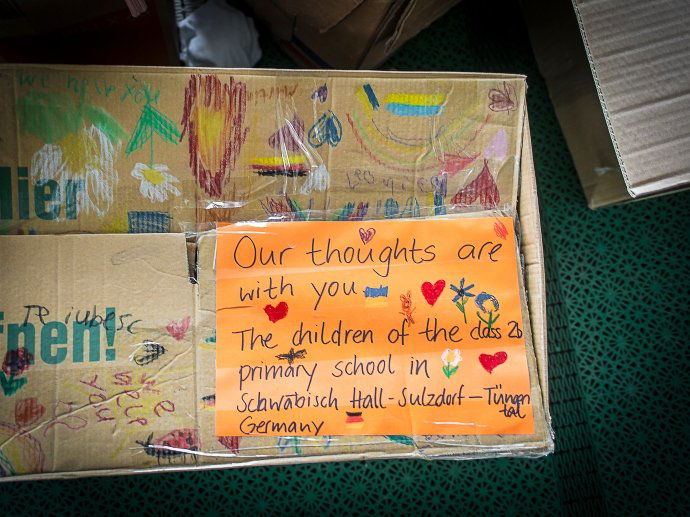 we help you
lier
Our thoughts are
with you
The children of the class 2b
primary school in
Schwäbisch Hall-Sulzdorf-Tüngen
tal
Germany
Te iubesc
fnen!
we
help
you